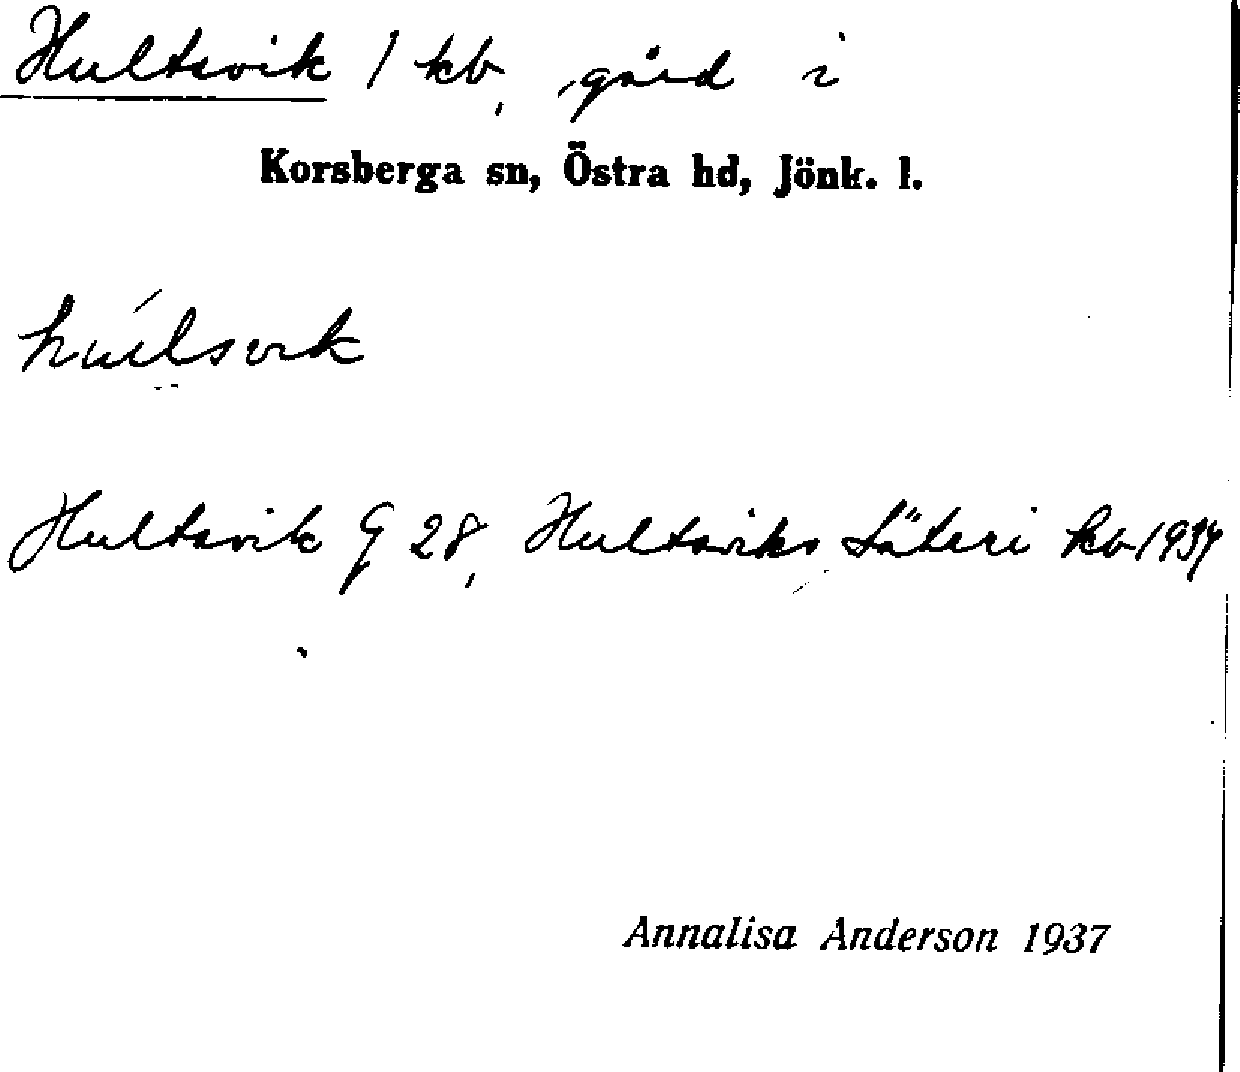 Hultsvik / kb, gård i
Korsberga sn, Östra hd, Jönk. l.
húlsvik
Hultsvik G 28, Hultsviks Säteri kb 1934
Annalisa Anderson 1937